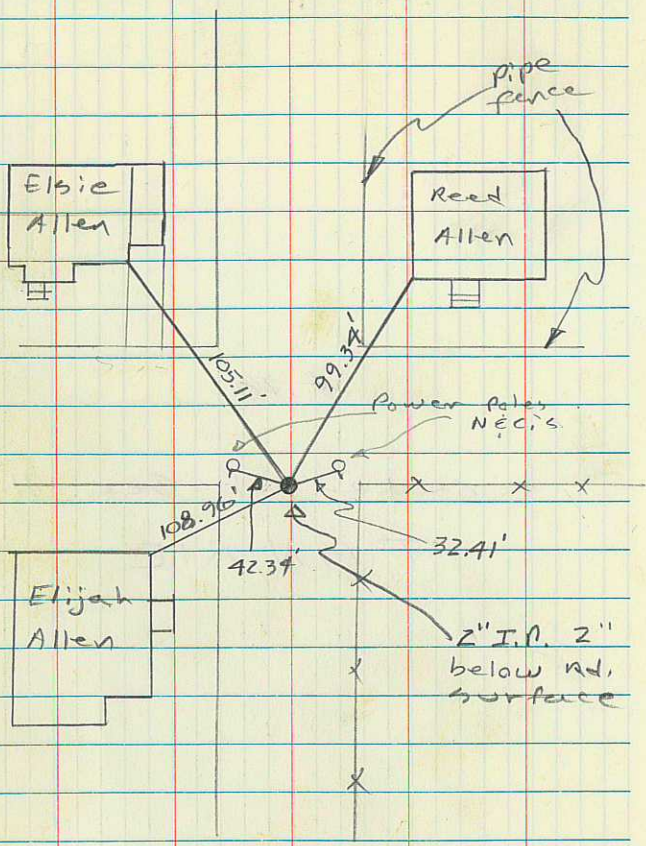 Pipe
fence
Elsie
Allen
Reed
Allen
105.11'
99.34'
Power Poles
N&C's.
108.96'
42.34'
32.41'
Elijah
Allen
2" I.P. 2"
below Rd.
surface